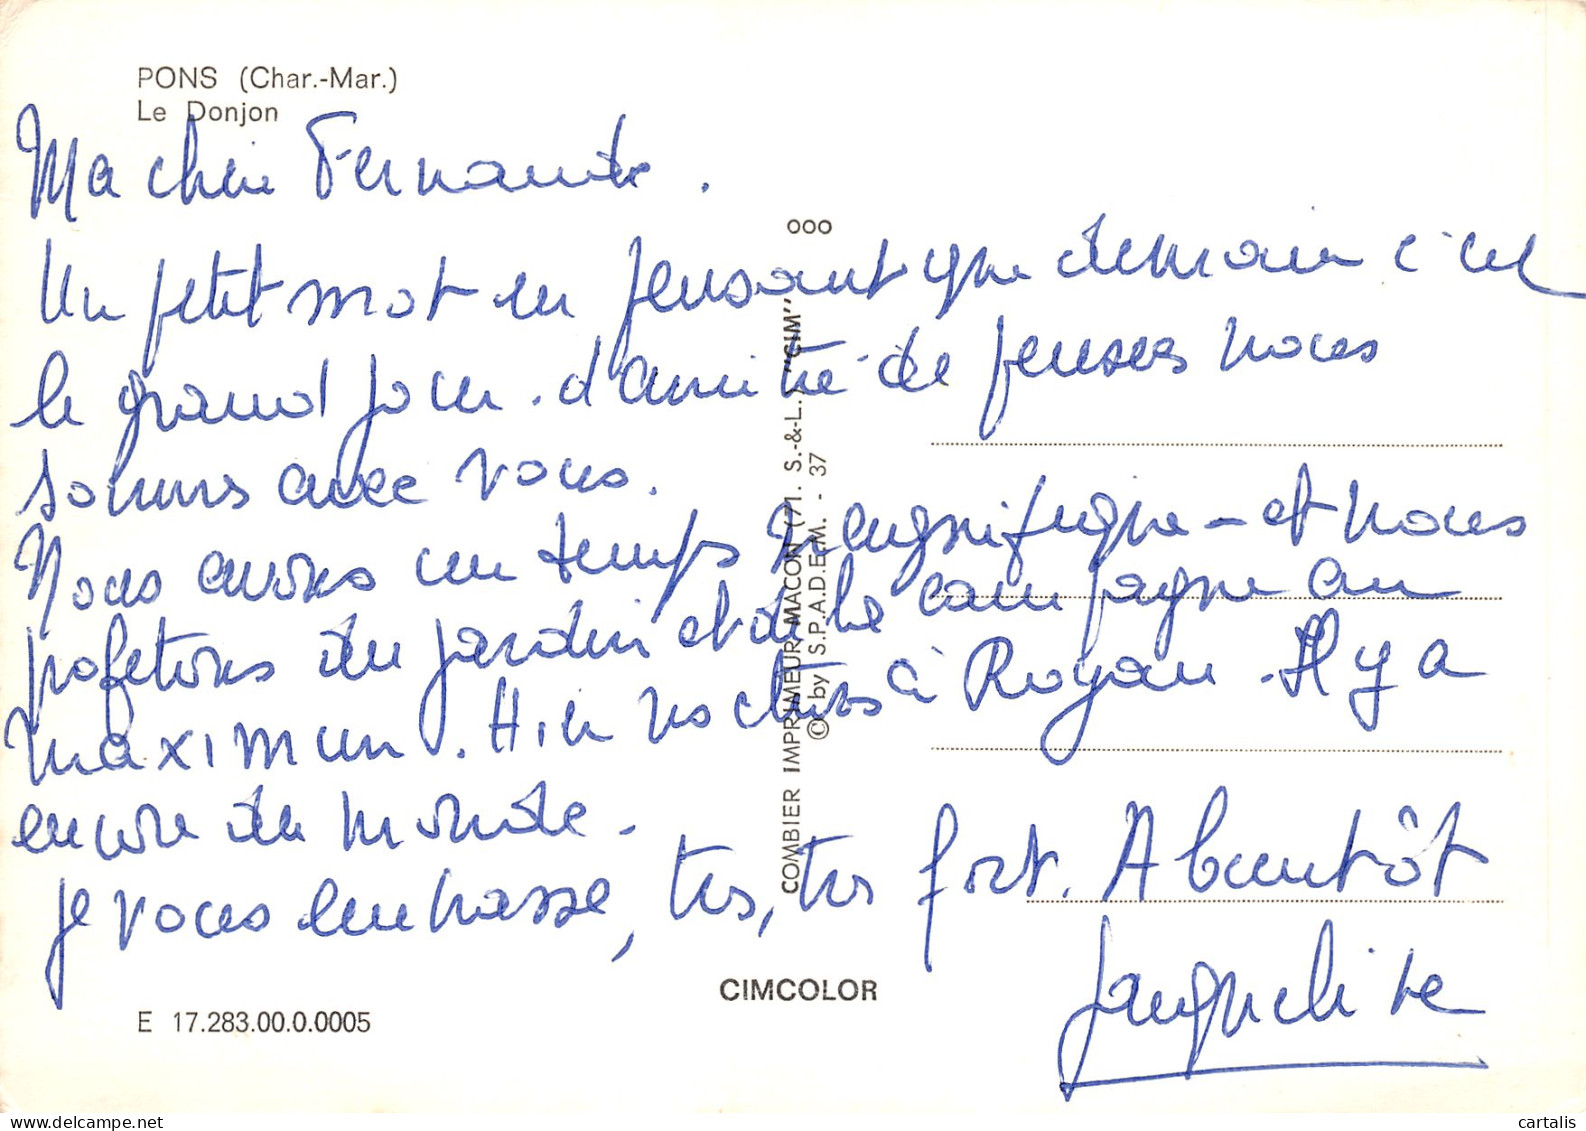 PONS (Char.-Mar.)
Le Donjon
Ma chère Fernande.
Un petit mot en pensant que demain c'est
le grand jour. d'amitié de pensées nous
sommes avec vous.
Nous avons un temps magnifique - et nous
profitons du jardin et de la campagne au
maximum. Hier nos à Royan. Il y a
encore du monde.
je vous embrasse, très, très fort. A bientôt
Jacqueline
ooo
COMBIER IMPRIMEUR MACON (71. S.-&-L.) "CIM"
© by S.P.A.D.E.M. - 37
CIMCOLOR
E 17.283.00.0.0005
cartalis